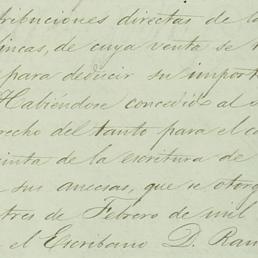 tribuciones directas de la
fincas, de cuya venta se
para deducir su import
Habiéndose concedido al
recho del tanto para el ca
inta de la escritura de
sus anecsas, que se otorg
tres de Febrero de mil
el Escribano D. Ram